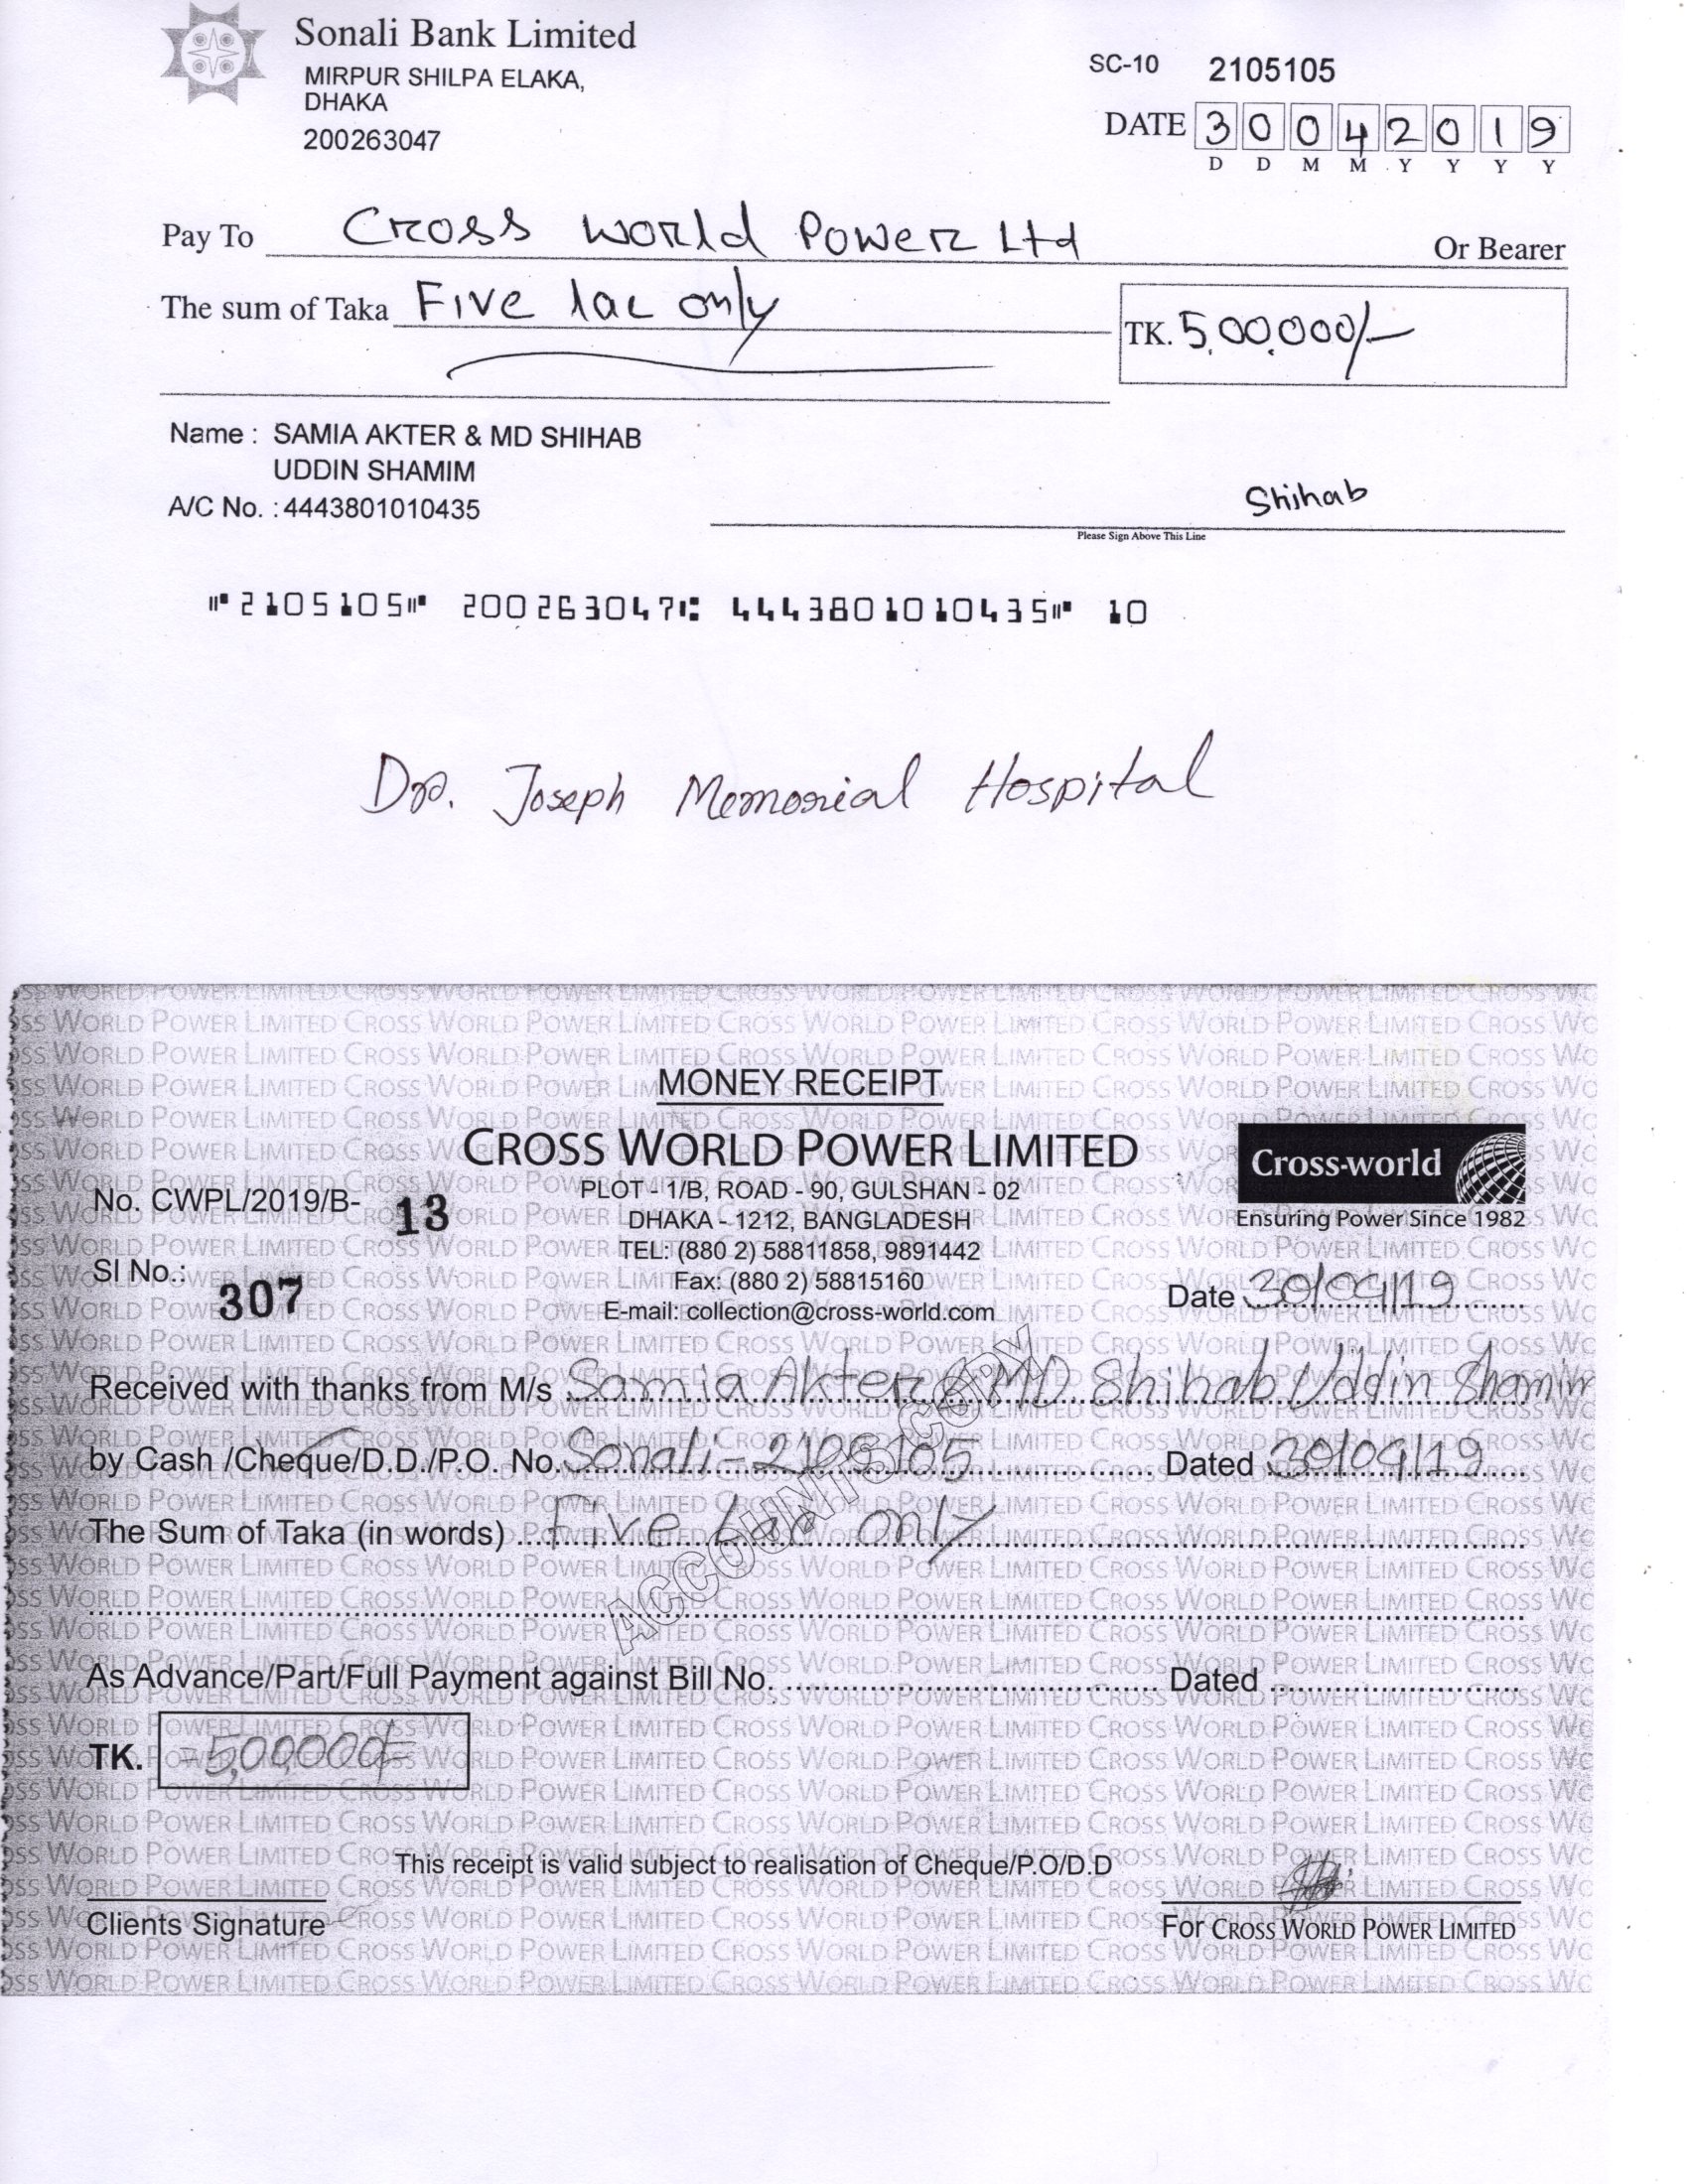 Sonali Bank Limited
MIRPUR SHILPA ELAKA,
DHAKA
200263047
SC-10 2105105
DATE 3 0 0 4 2 0 1 9
D D M M Y Y Y Y
Pay To Cross World Power Ltd Or Bearer
The sum of Taka Five lac only TK. 5,00,000/-
Name : SAMIA AKTER & MD SHIHAB
UDDIN SHAMIM
A/C No. : 4443801010435
Shihab
Please Sign Above This Line
⑈2105105⑈ 200263047⑆ 4443801010435⑈ 10
Dr. Joseph Memorial Hospital
MONEY RECEIPT
CROSS WORLD POWER LIMITED
Cross-world
Ensuring Power Since 1982
No. CWPL/2019/B- 13
PLOT - 1/B, ROAD - 90, GULSHAN - 02
DHAKA - 1212, BANGLADESH
TEL: (880 2) 58811858, 9891442
Sl No.: 307
Fax: (880 2) 58815160
E-mail: collection@cross-world.com
Date 30/04/19
Received with thanks from M/s Samia Akter & MD. Shihab Uddin Shamim
by Cash /Cheque/D.D./P.O. No. Sonali-2105105 Dated 30/04/19
The Sum of Taka (in words) Five lac only
ACCOUNTS COPY
As Advance/Part/Full Payment against Bill No. Dated
TK. =5,00,000/=
This receipt is valid subject to realisation of Cheque/P.O/D.D
Clients Signature
For CROSS WORLD POWER LIMITED